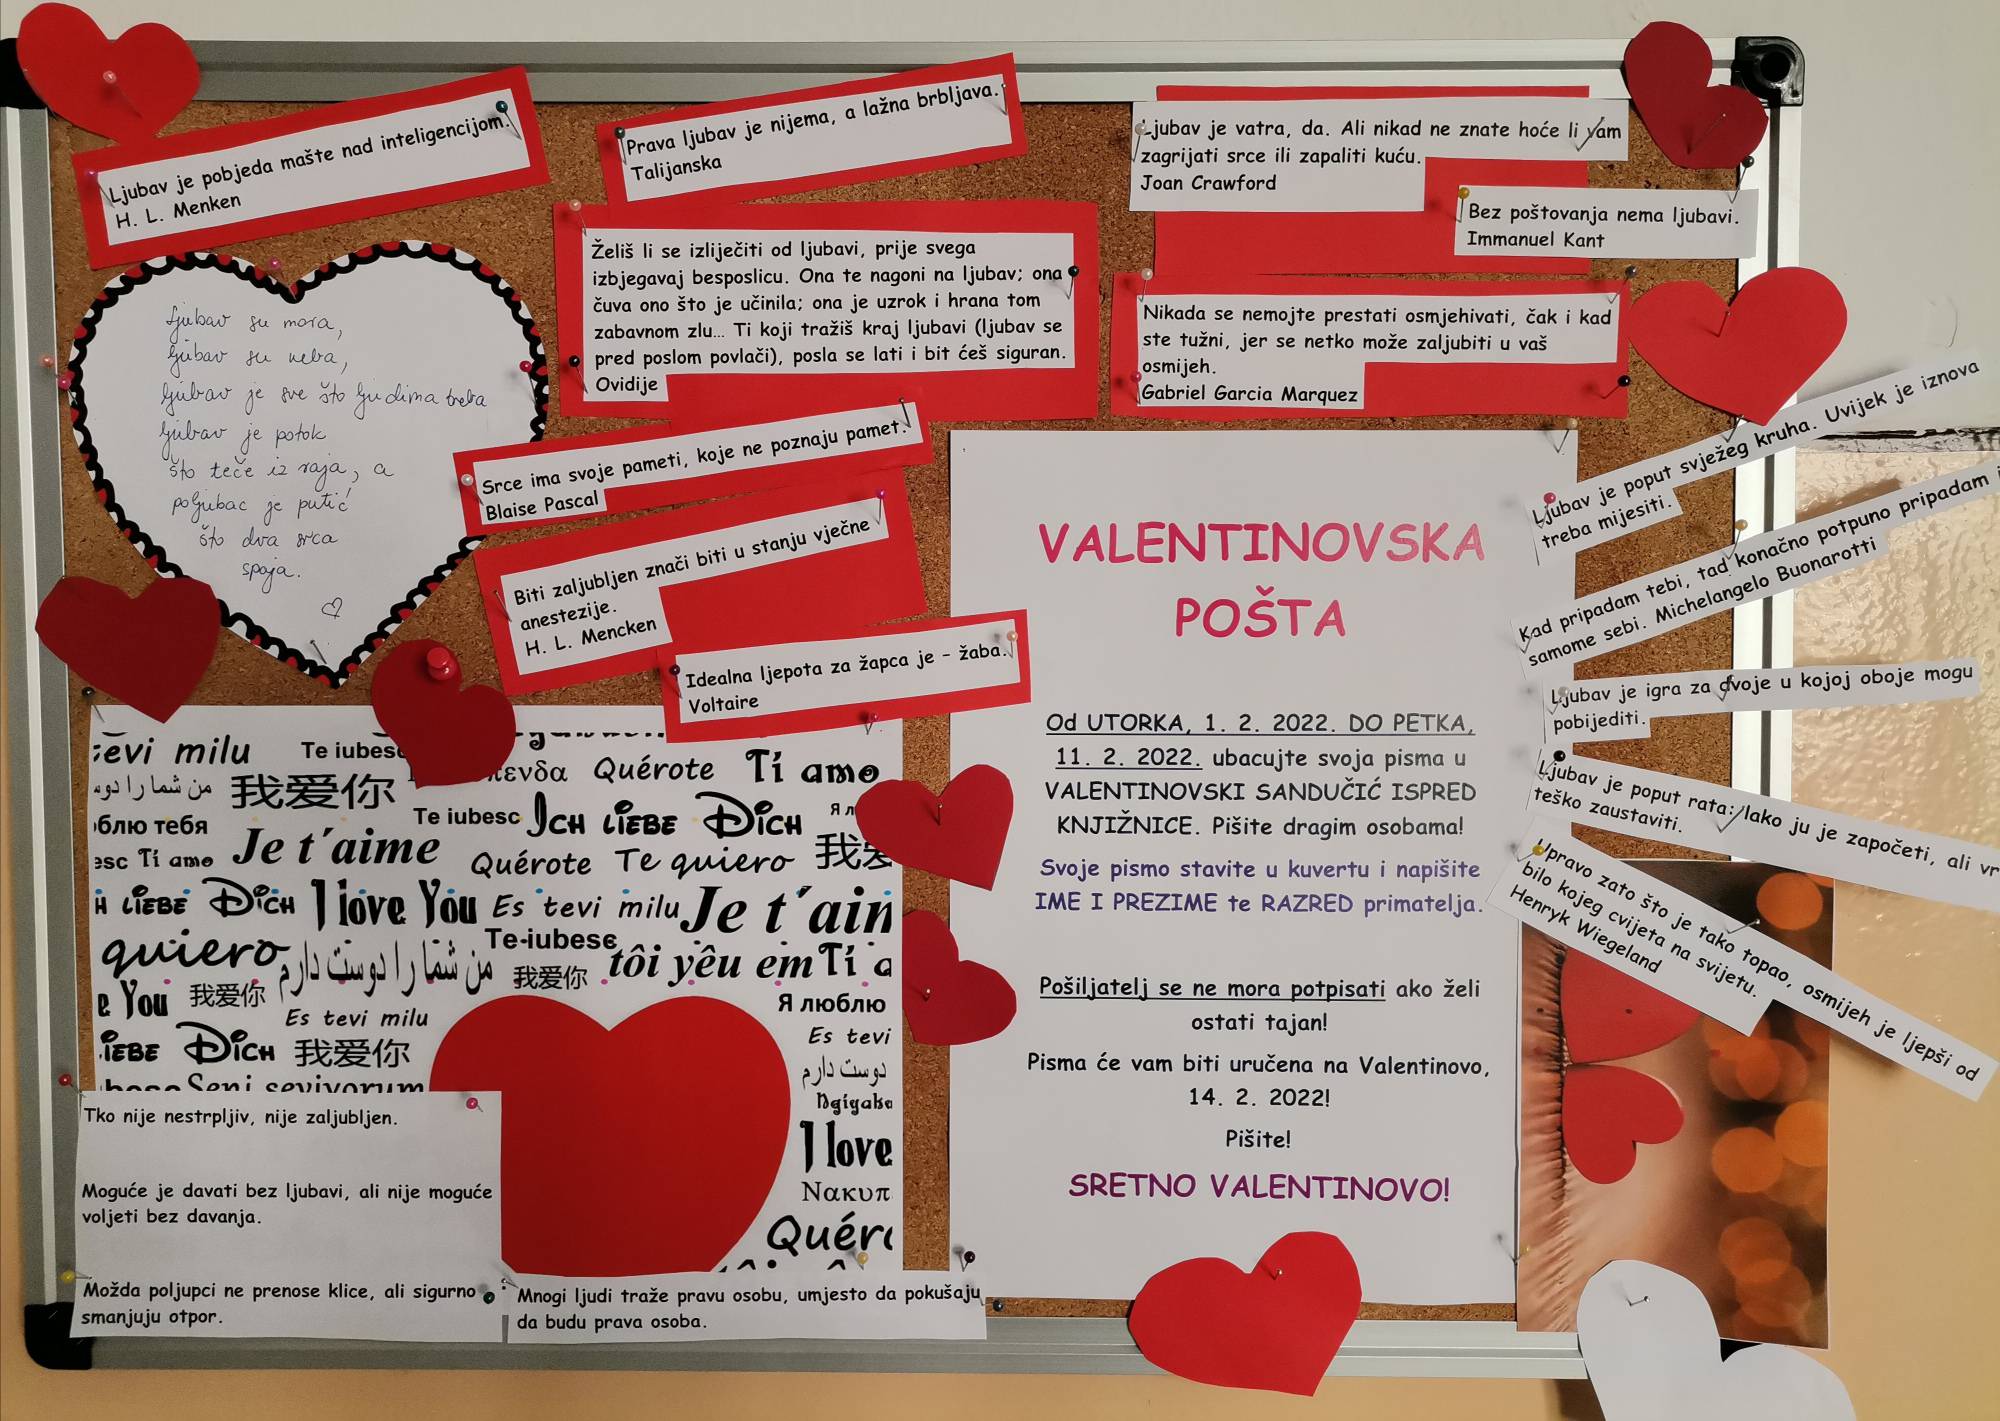 Ljubav je pobjeda mašte nad inteligencijom.
H. L. Menken
Prava ljubav je nijema, a lažna brbljava.
Talijanska
Ljubav je vatra, da. Ali nikad ne znate hoće li vam
zagrijati srce ili zapaliti kuću.
Joan Crawford
Bez poštovanja nema ljubavi.
Immanuel Kant
Želiš li se izliječiti od ljubavi, prije svega
izbjegavaj besposlicu. Ona te nagoni na ljubav; ona
čuva ono što je učinila; ona je uzrok i hrana tom
zabavnom zlu... Ti koji tražiš kraj ljubavi (ljubav se
pred poslom povlači), posla se lati i bit ćeš siguran.
Ovidije
Nikada se nemojte prestati osmjehivati, čak i kad
ste tužni, jer se netko može zaljubiti u vaš
osmijeh.
Gabriel Garcia Marquez
ljubav su mora,
ljubav su neba,
ljubav je sve što ljudima treba
ljubav je potok
što teče iz raja, a
poljubac je putić
što dva srca
spaja.
Srce ima svoje pameti, koje ne poznaju pamet.
Blaise Pascal
Biti zaljubljen znači biti u stanju vječne
anestezije.
H. L. Mencken
Idealna ljepota za žapca je - žaba.
Voltaire
VALENTINOVSKA
POŠTA
Od UTORKA, 1. 2. 2022. DO PETKA,
11. 2. 2022. ubacujte svoja pisma u
VALENTINOVSKI SANDUČIĆ ISPRED
KNJIŽNICE. Pišite dragim osobama!
Svoje pismo stavite u kuvertu i napišite
IME I PREZIME te RAZRED primatelja.
Pošiljatelj se ne mora potpisati ako želi
ostati tajan!
Pisma će vam biti uručena na Valentinovo,
14. 2. 2022!
Pišite!
SRETNO VALENTINOVO!
Ljubav je poput svježeg kruha. Uvijek je iznova
treba mijesiti.
Kad pripadam tebi, tad konačno potpuno pripadam
samome sebi. Michelangelo Buonarotti
Ljubav je igra za dvoje u kojoj oboje mogu
pobijediti.
Ljubav je poput rata: lako ju je započeti, ali vr
teško zaustaviti.
Upravo zato što je tako topao, osmijeh je ljepši od
bilo kojeg cvijeta na svijetu.
Henryk Wiegeland
tevi milu Te iubesc
Quérote Ti amo
من شما را دوس 我爱你
блю тебя Te iubesc Ich liebe Dich Я л
esc Ti amo Je t´aime Quérote Te quiero 我爱
H liebe Dich I love You Es tevi milu Je t´aim
quiero من شما را دوست دارم Te iubesc 我爱你 tôi yêu em Ti a
e You 我爱你 Es tevi milu Я люблю
iebe Dich 我爱你 Es tevi
Seni seviyorum دوست دارم
I love
Quéro
Tko nije nestrpljiv, nije zaljubljen.
Moguće je davati bez ljubavi, ali nije moguće
voljeti bez davanja.
Možda poljupci ne prenose klice, ali sigurno
smanjuju otpor.
Mnogi ljudi traže pravu osobu, umjesto da pokušaju
da budu prava osoba.